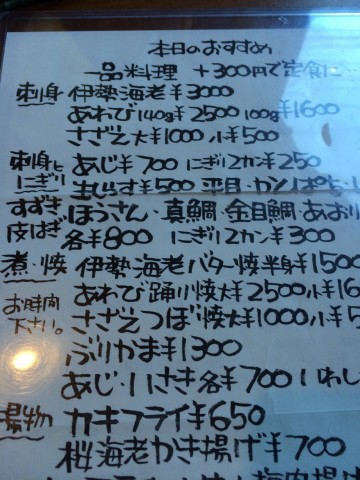 本日のおすすめ
一品料理 +300円で定食に
刺身 伊勢海老¥3000
あわび140g¥2500 100g¥1600
さざえ大¥1000 小¥500
刺身と あじ¥700 にぎり2カン¥250
にぎり 生しらす¥500 平目・カンパチ・
すずき ほうさん・真鯛・金目鯛・あおり
皮はぎ 各¥800 にぎり2カン¥300
煮・焼 伊勢海老バター焼半身¥1500
お時間 あわび踊り焼大¥2500小¥16
下さい。 さざえつぼ焼大¥1000小¥5
ぶりかま¥1300
あじ・いさき各¥700 いわし
揚物 カキフライ¥650
桜海老かき揚げ¥700